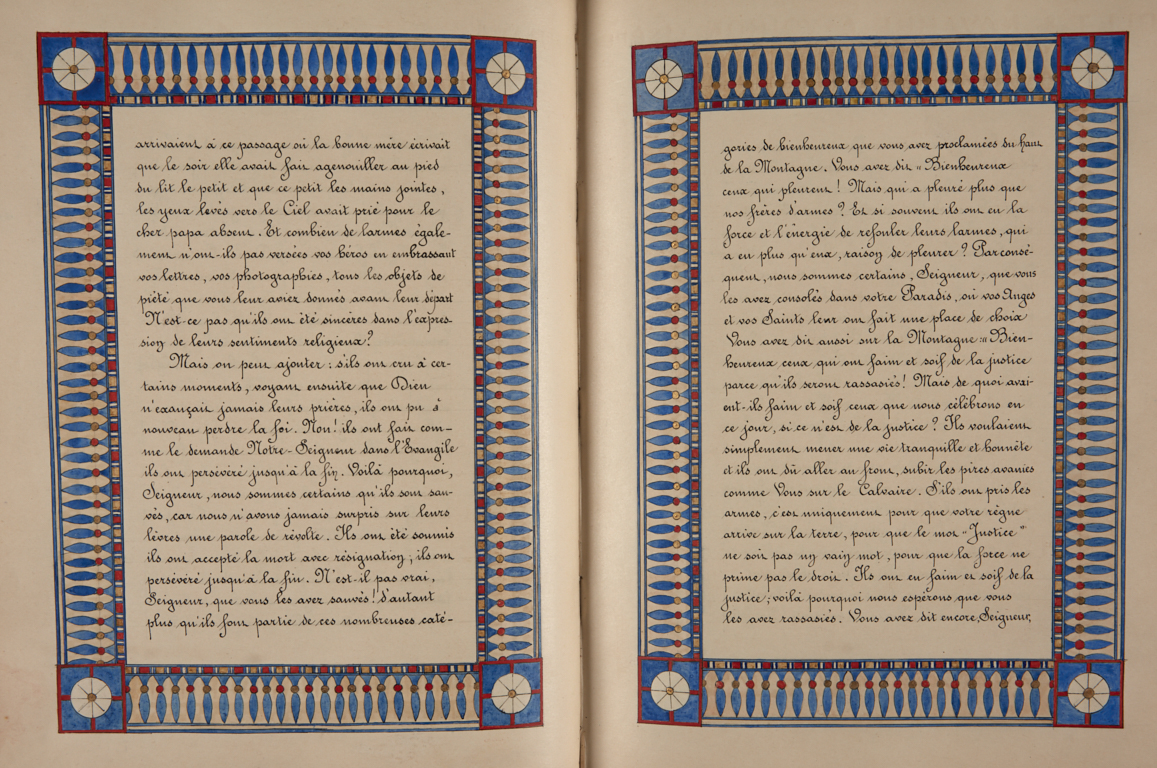 arrivaient à ce passage où la bonne mère écrivait
que le soir elle avait fait agenouiller au pied
du lit le petit et que ce petit les mains jointes,
les yeux levés vers le Ciel avait prié pour le
cher papa absent. Et combien de larmes égale-
ment n'ont-ils pas versées vos héros en embrassant
vos lettres, vos photographies, tous les objets de
piété que vous leur aviez donnés avant leur départ
N'est-ce pas qu'ils ont été sincères dans l'expres-
sion de leurs sentiments religieux?
Mais on peut ajouter: s'ils ont cru à cer-
tains moments, voyant ensuite que Dieu
n'exauçait jamais leurs prières, ils ont pu à
nouveau perdre la foi. Non! ils ont fait com-
me le demande Notre-Seigneur dans l'Evangile
ils ont persévéré jusqu'à la fin. Voilà pourquoi,
Seigneur, nous sommes certains qu'ils sont sau-
vés, car nous n'avons jamais surpris sur leurs
lèvres une parole de révolte. Ils ont été soumis
ils ont accepté la mort avec résignation; ils ont
persévéré jusqu'à la fin. N'est-il pas vrai,
Seigneur, que vous les avez sauvés! d'autant
plus qu'ils font partie de ces nombreuses caté-
gories de bienheureux que vous avez proclamées du haut
de la Montagne. Vous avez dit "Bienheureux
ceux qui pleurent! Mais qui a pleuré plus que
nos frères d'armes? Et si souvent ils ont eu la
force et l'énergie de refouler leurs larmes, qui
a eu plus qu'eux, raison de pleurer? Par consé-
quent, nous sommes certains, Seigneur, que vous
les avez consolés dans votre Paradis, où vos Anges
et vos Saints leur ont fait une place de choix
Vous avez dit aussi sur la Montagne: "Bien-
heureux ceux qui ont faim et soif de la justice
parce qu'ils seront rassasiés! Mais de quoi avai-
ent-ils faim et soif ceux que nous célébrons en
ce jour, si ce n'est de la justice? Ils voulaient
simplement mener une vie tranquille et honnête
et ils ont dû aller au front, subir les pires avanies
comme Vous sur le Calvaire. S'ils ont pris les
armes, c'est uniquement pour que votre règne
arrive sur la terre, pour que le mot "Justice"
ne soit pas un vain mot, pour que la force ne
prime pas le droit. Ils ont eu faim et soif de la
justice; voilà pourquoi nous espérons que vous
les avez rassasiés. Vous avez dit encore, Seigneur,